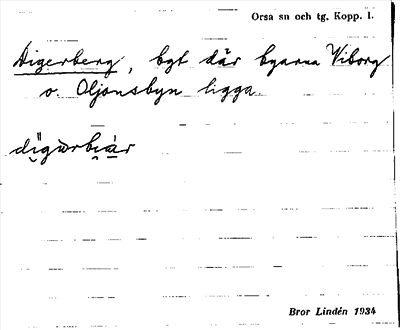 Orsa sn och tg. Kopp. l.
Digerberg, bgt där byarna Viborg
o. Oljonsbyn ligga.
dı̈gɯrbi̯ár
Bror Lindén 1934